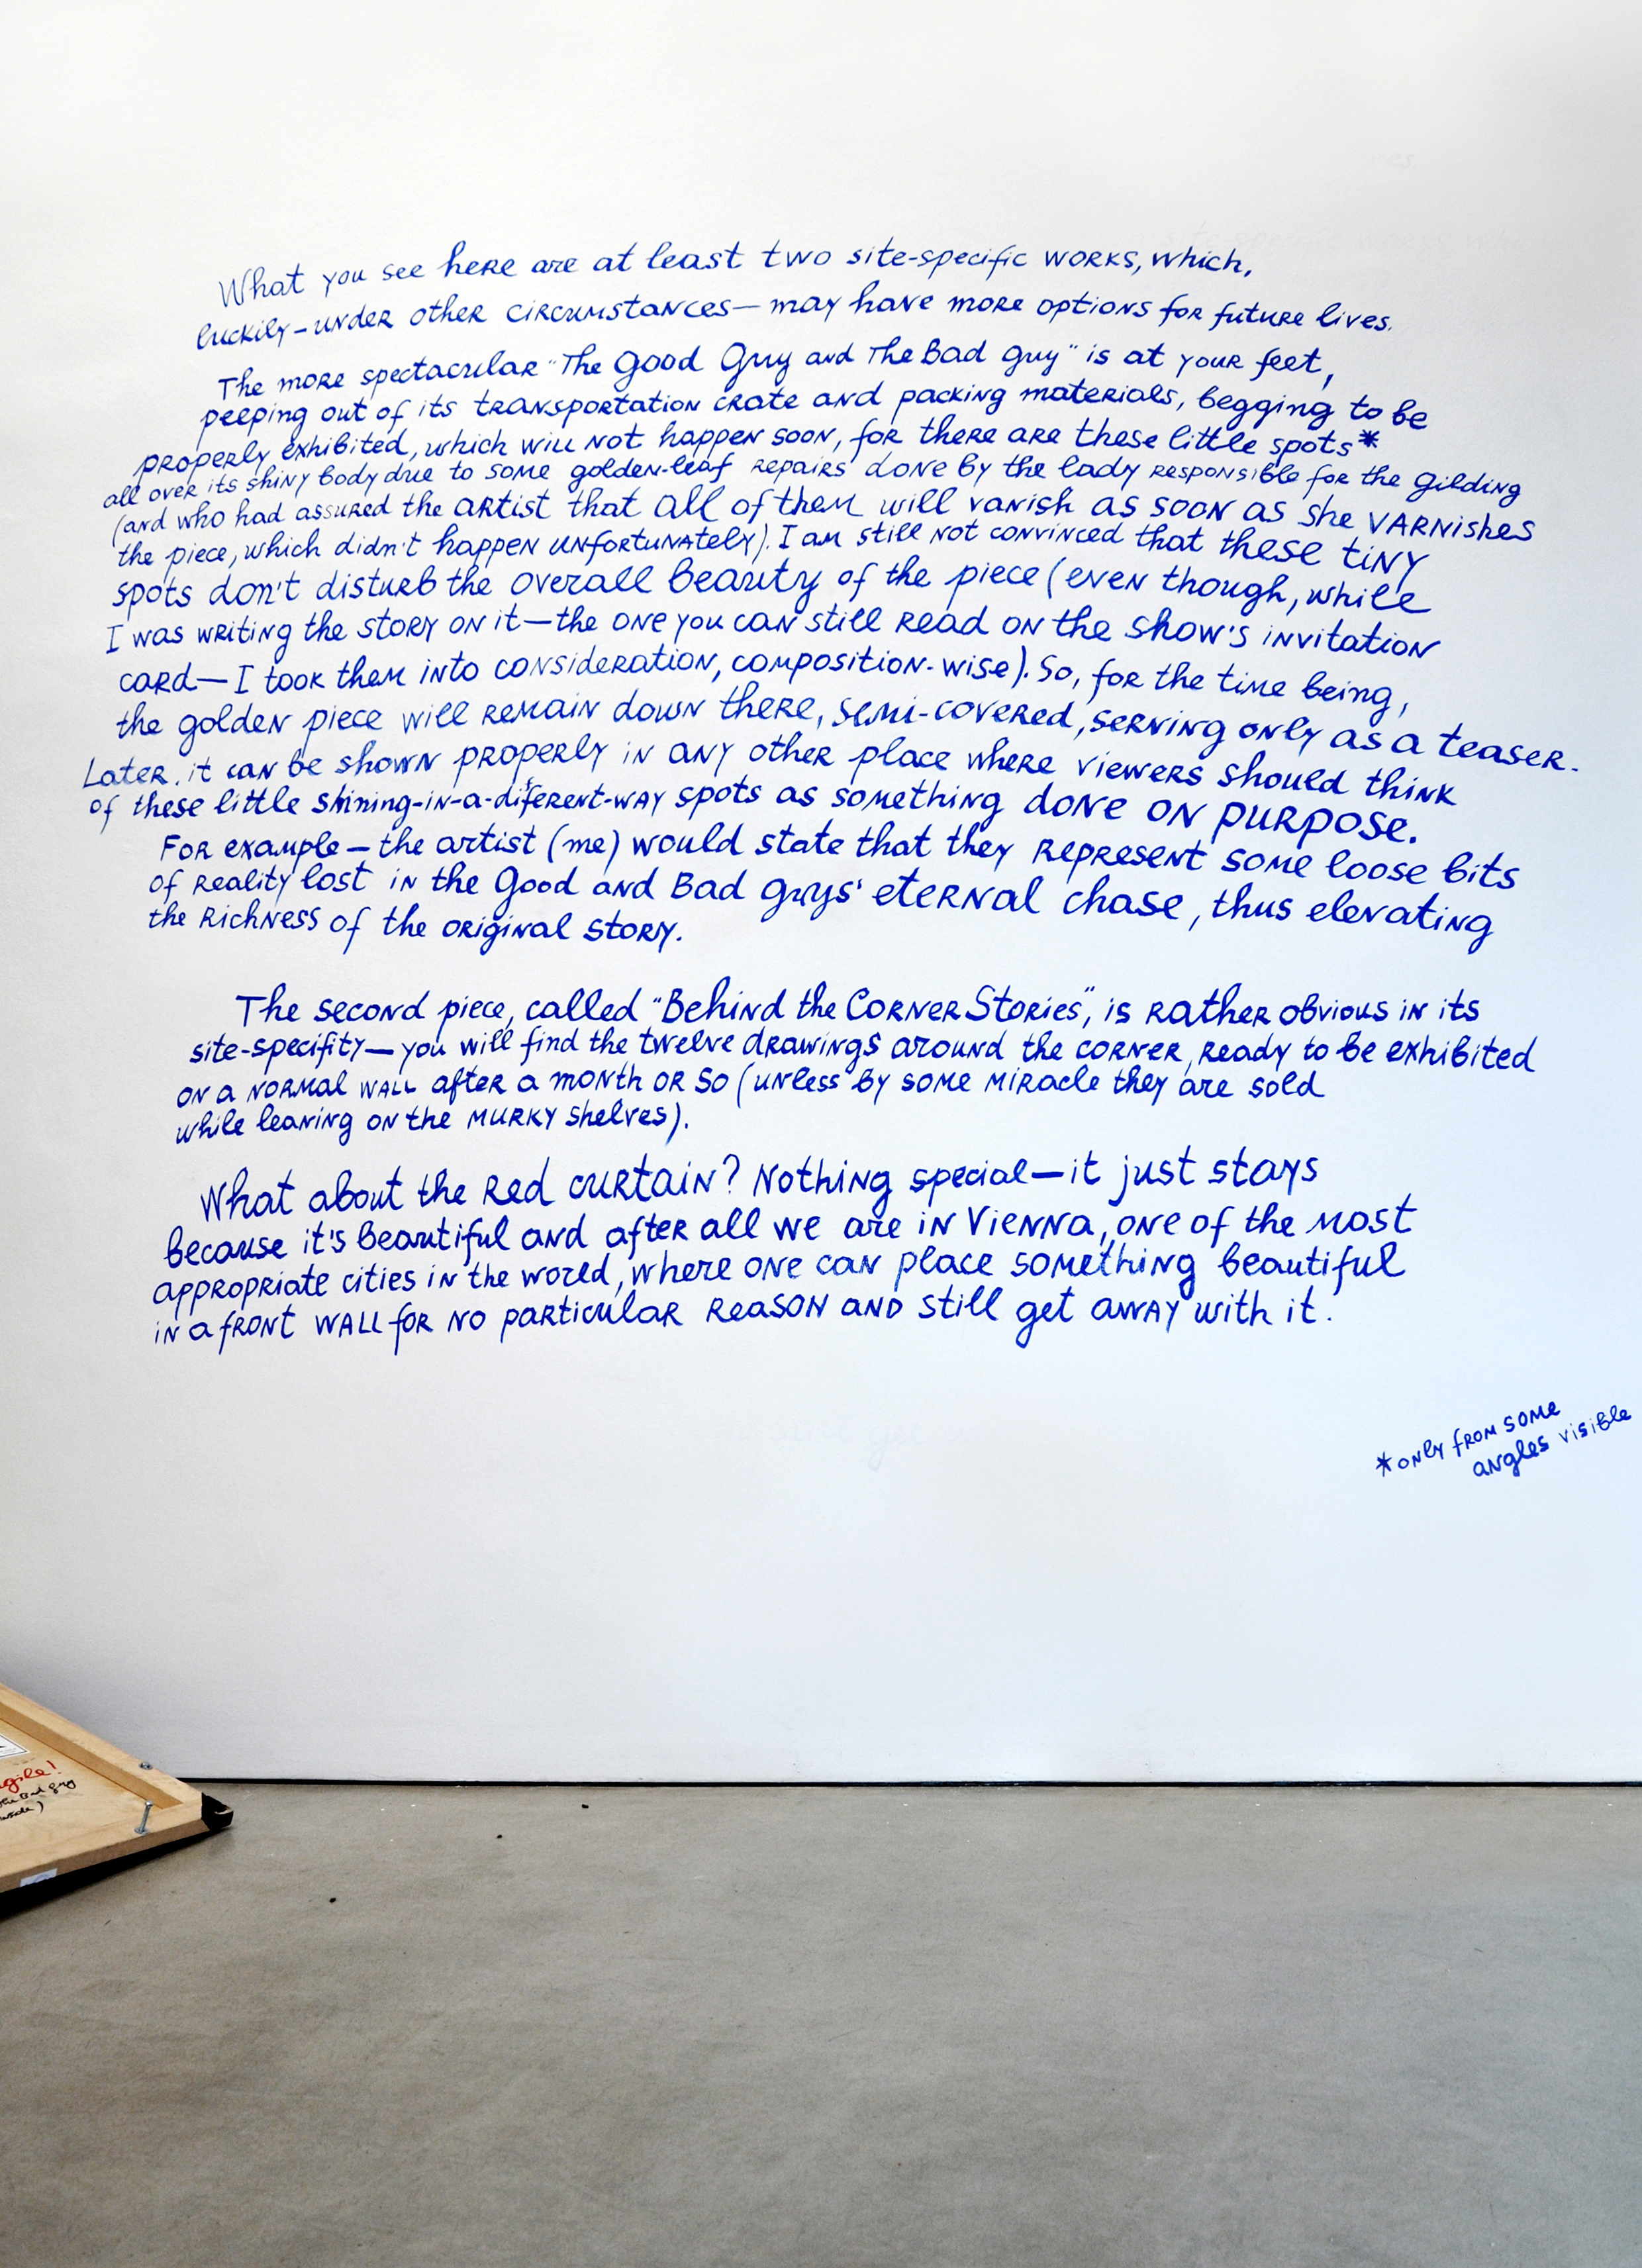 What you see here are at least two site-specific works, which,
luckily–under other circumstances—may have more options for future lives.
The more spectacular "The Good Guy and The Bad Guy" is at your feet,
peeping out of its transportation crate and packing materials, begging to be
properly exhibited, which will not happen soon, for there are these little spots*
all over its shiny body due to some golden-leaf repairs done by the lady responsible for the gilding
(and who had assured the artist that all of them will vanish as soon as she varnishes
the piece, which didn't happen unfortunately). I am still not convinced that these tiny
spots don't disturb the overall beauty of the piece (even though, while
I was writing the story on it—the one you can still read on the show's invitation
card—I took them into consideration, composition-wise). So, for the time being,
the golden piece will remain down there, semi-covered, serving only as a teaser.
Later, it can be shown properly in any other place where viewers should think
of these little shining-in-a-diferent-way spots as something done on purpose.
For example – the artist (me) would state that they represent some loose bits
of reality lost in the Good and Bad guys' eternal chase, thus elevating
the richness of the original story.
The second piece, called "Behind the Corner Stories", is rather obvious in its
site-specifity—you will find the twelve drawings around the corner, ready to be exhibited
on a normal wall after a month or so (unless by some miracle they are sold
while leaning on the murky shelves).
What about the red curtain? Nothing special—it just stays
because it's beautiful and after all we are in Vienna, one of the most
appropriate cities in the world, where one can place something beautiful
in a front wall for no particular reason and still get away with it.
*only from some
angles visible
the Bad Guy